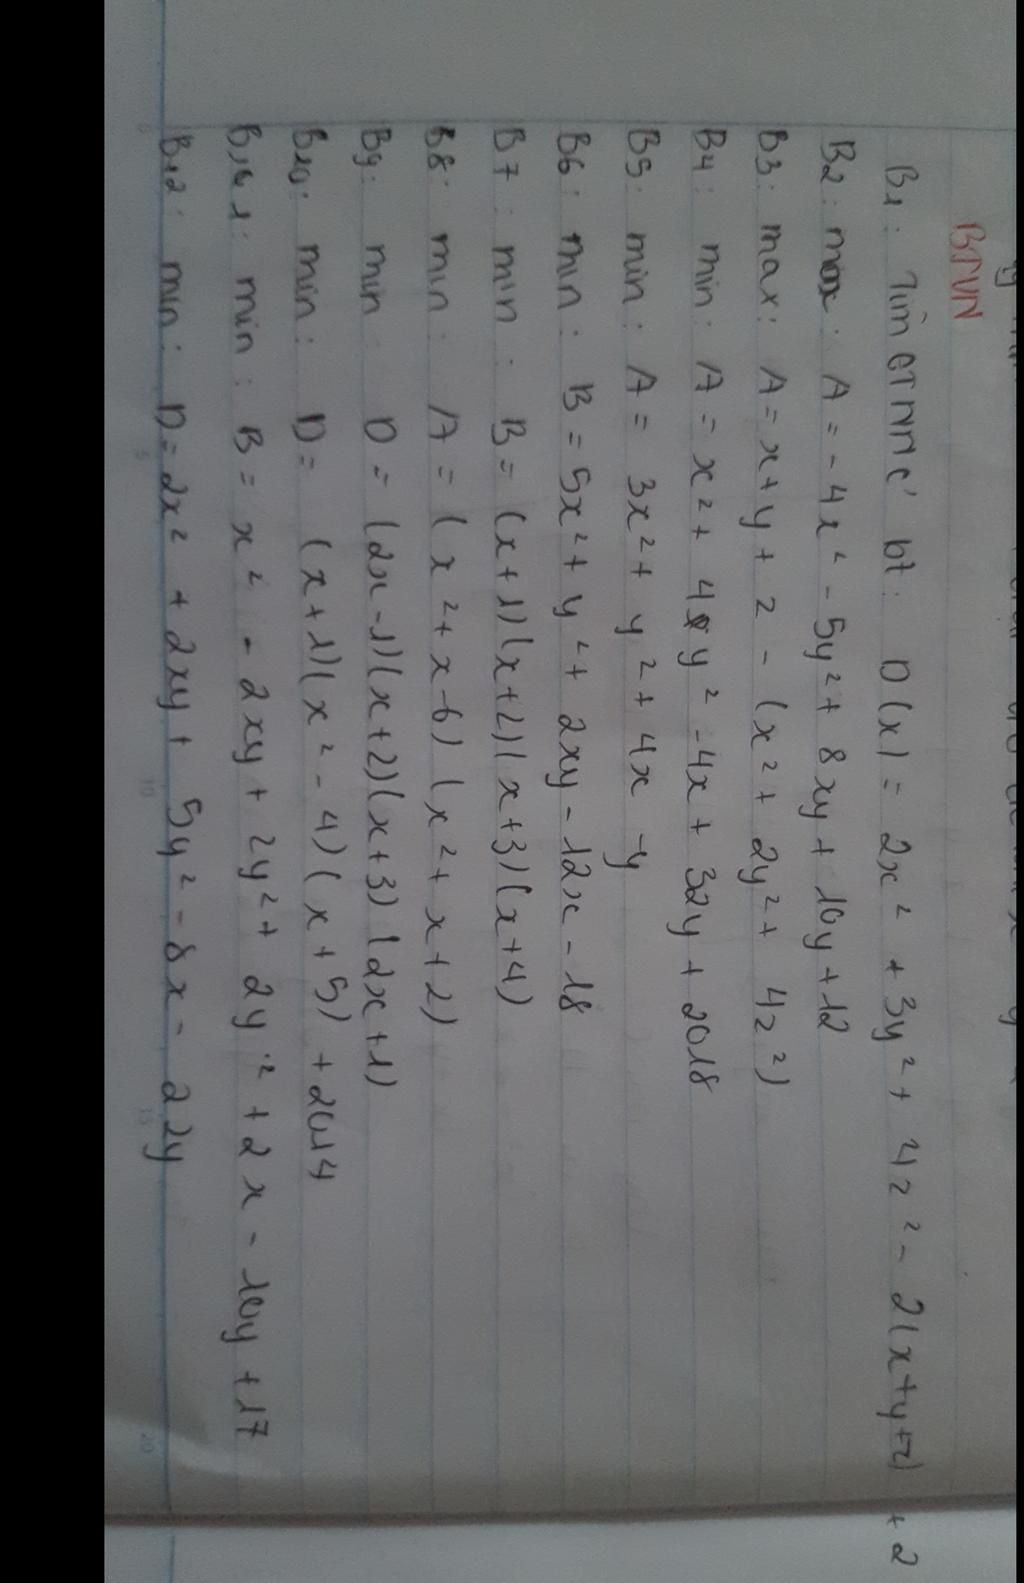 BTVN
B1: Tìm GTNN c' bt: D(x) = 2x² + 3y² + 4z² - 2(x+y+z) + 2
B2: max: A = - 4x² - 5y² + 8xy + 10y + 12
B3: max: A = x + y + z - (x² + 2y² + 4z²)
B4: min: A = x² + 4y² - 4x + 32y + 2018
B5: min: A = 3x² + y² + 4x - y
B6: min: B = 5x² + y² + 2xy - 12x - 18
B7: min: B = (x+1)(x+2)(x+3)(x+4)
B8: min: A = (x² + x - 6)(x² + x + 2)
B9: min: D = (2x - 1)(x + 2)(x + 3)(2x + 1)
B10: min: D = (x + 1)(x² - 4)(x + 5) + 2014
B11: min: B = x² - 2xy + 2y² + 2y² + 2x - 10y + 17
B12: min: D = 2x² + 2xy + 5y² - 8x - 22y